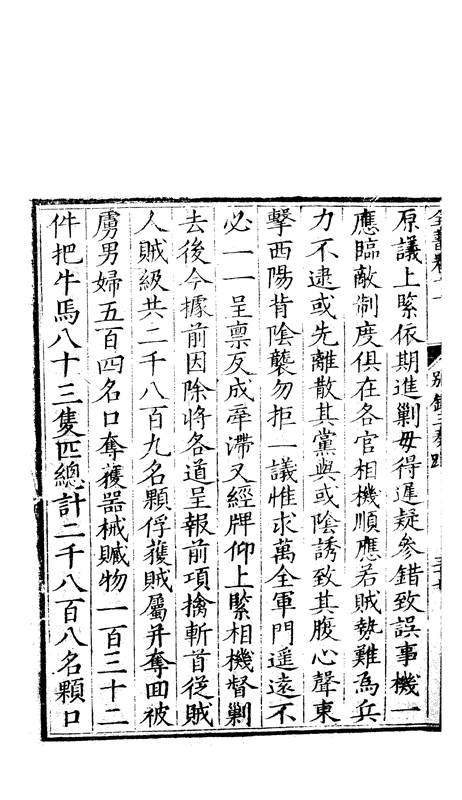 原議上緊依期進剿毋得遲疑參錯致誤事機一
應臨敵制度俱在各官相機順應若賊勢難為兵
力不逮或先離散其黨與或陰誘致其腹心聲東
擊西陽背陰襲勿拒一議惟求萬全軍門遥遠不
必一一呈禀反成牽滯又經牌仰上緊相機督剿
去後今據前因除將各道呈報前項擒斬首從賊
人賊級共二千八百九名顆俘獲賊屬并奪回被
虜男婦五百四名口奪獲器械贓物一百三十二
件把牛馬八十三隻匹總計二千八百八名顆口